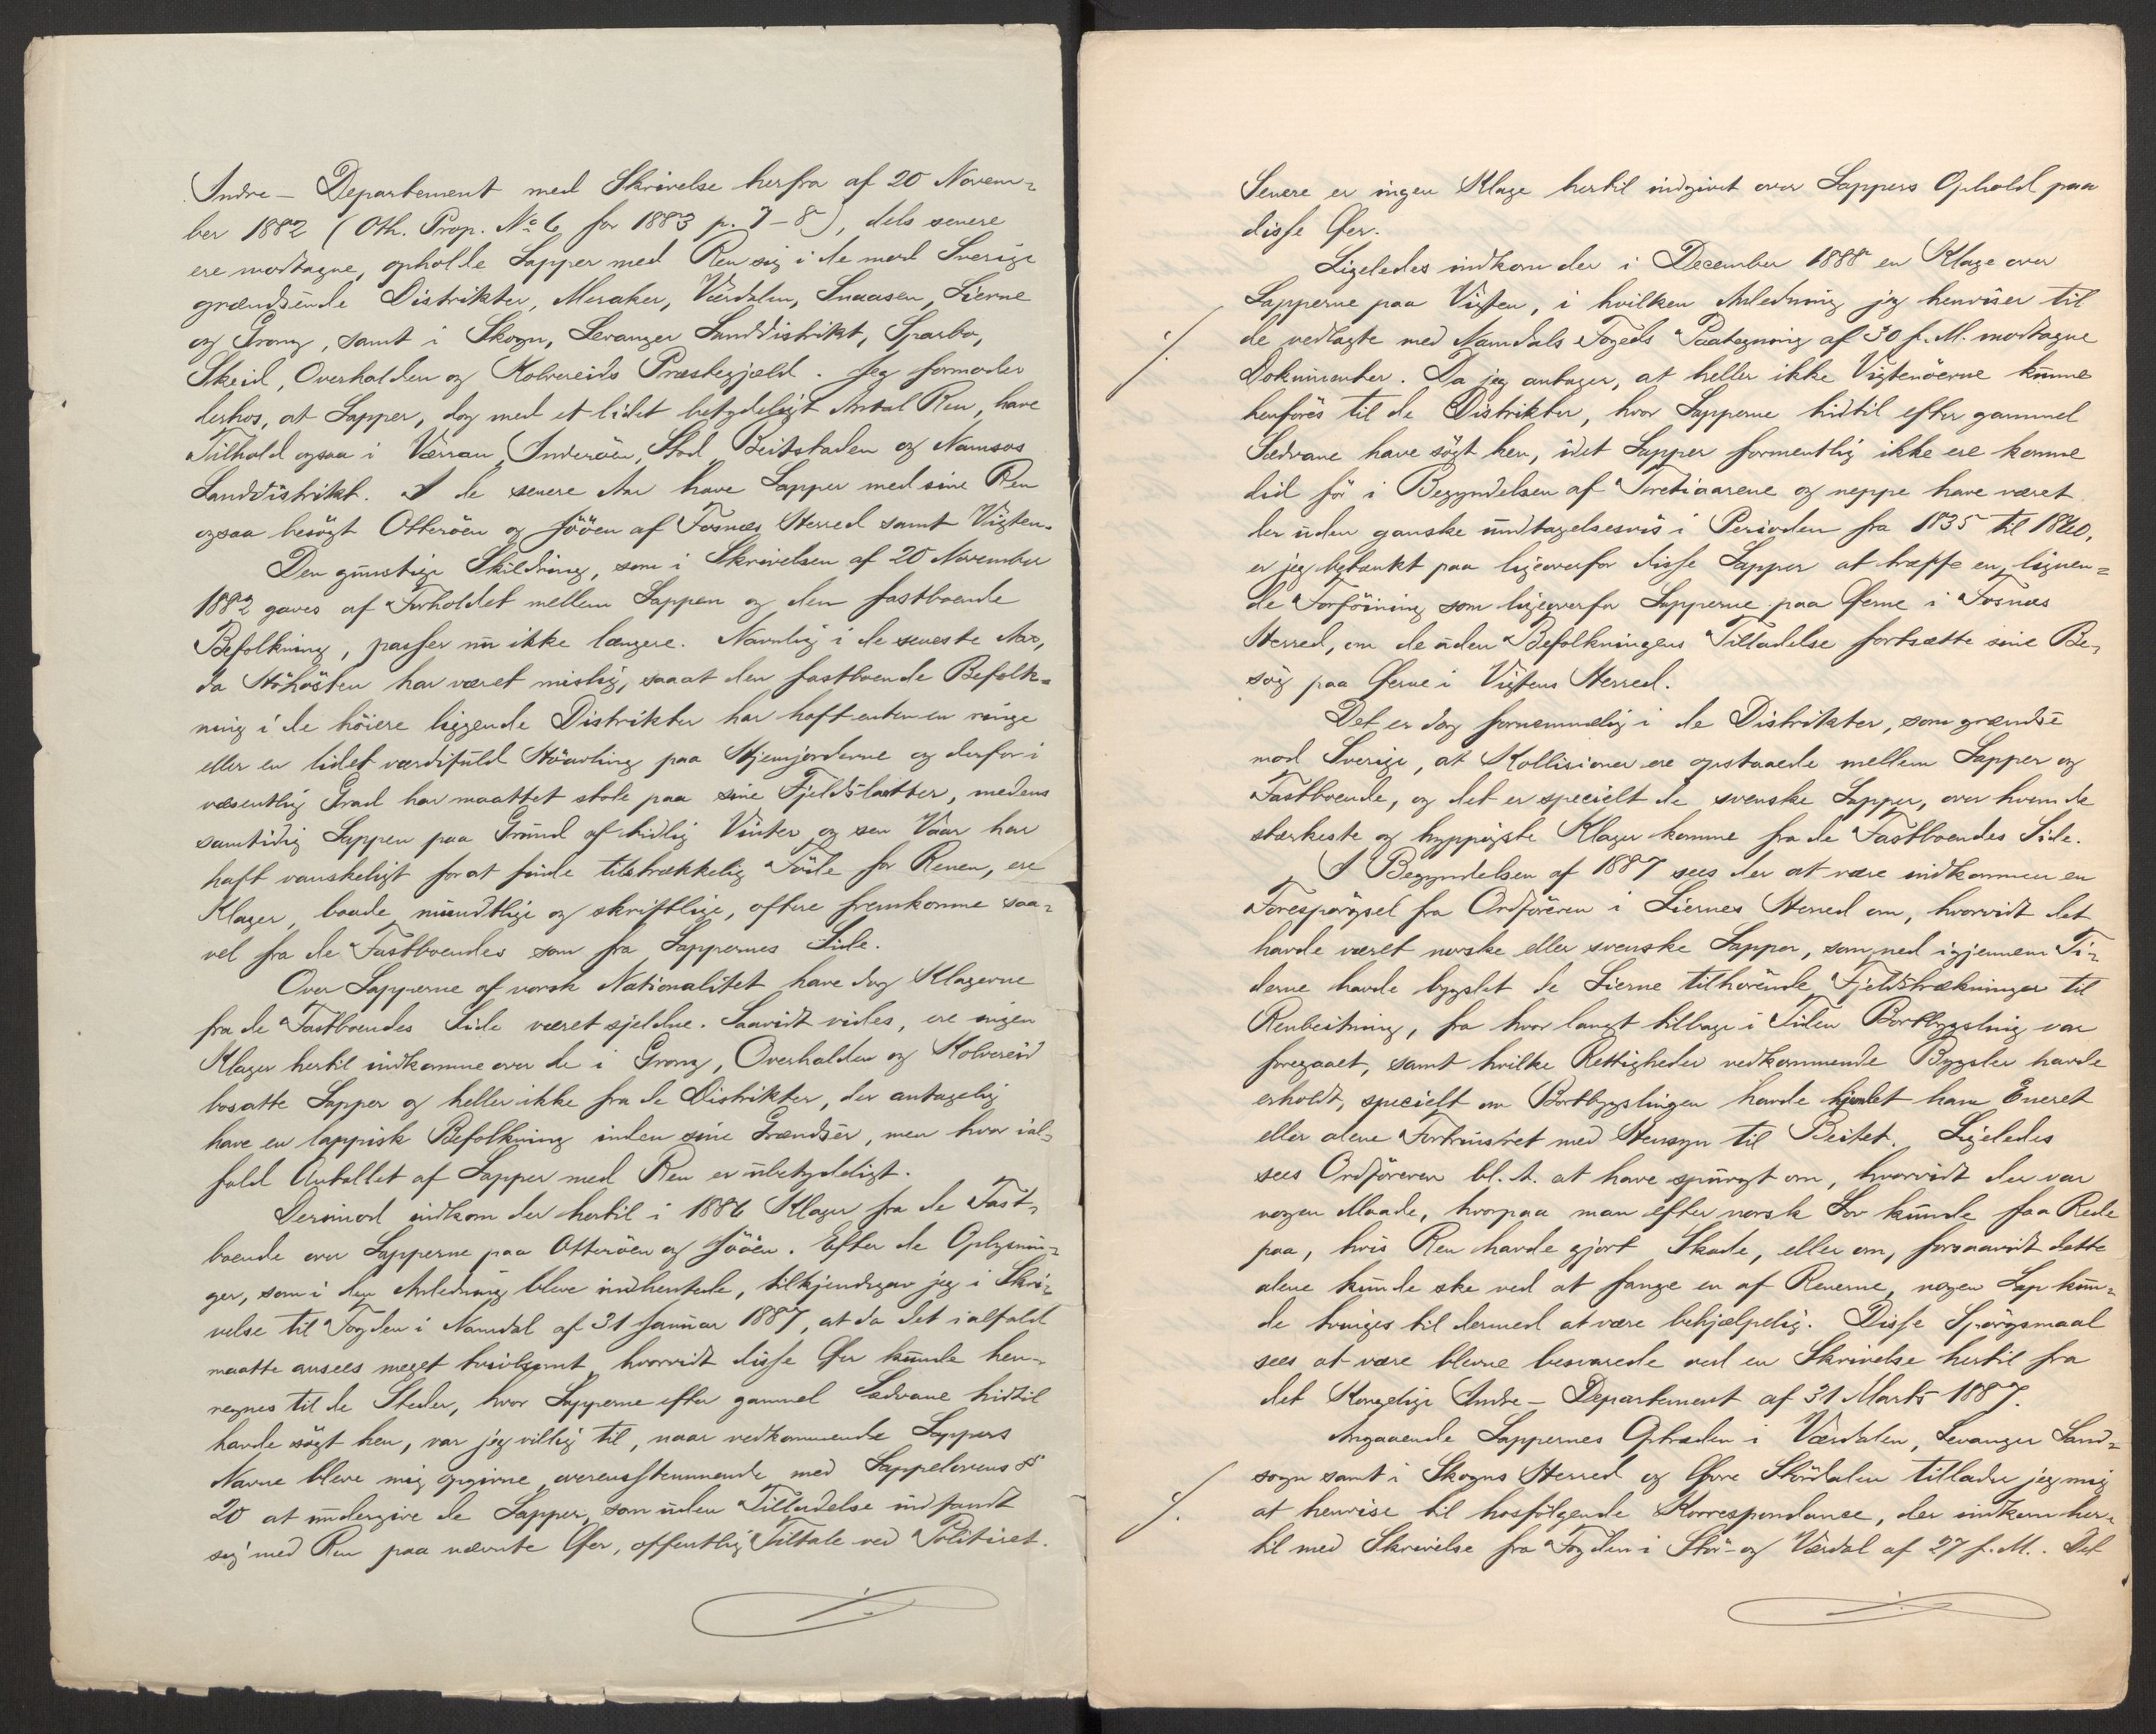 Indre-Departement med Skrivelse herfra af 20 Novem-
ber 1882 (Oth. Prop. No 6 for 1883 p. 7-8), dels senere
ere modtagne, opholde Lapper med Ren sig i de mod Sverige
grændsende Distrikter, Meraker, Værdalen, Snaasen, Lierne
og Grong, samt i Skogn, Levanger Landdistrikt, Sparbo,
Skeid, Overhalden og Kolvereids Præstegjæld. Jeg formoder
derhos, at Lapper, dog med et lidet betydeligt Antal Ren, have
Tilhold ogsaa i Værran, Inderøen, Stod, Beitstaden og Namsos
Landdistrikt. I de senere Aar have Lapper med sine Ren
ogsaa besøgt Otterøen og Jøøen af Fosnæs Herred samt Vigten.
Den gunstige Skildring, som i Skrivelsen af 20 November
1882 gaves af Forholdet mellem Lappen og den fastboende
Befolkning, passer nu ikke længere. Navnlig i de seneste Aar,
da Høhøsten har været mislig, saaat den fastboende Befolk-
ning i de høiere liggende Distrikter har haft enten en ringe
eller en lidet værdifuld Høavling paa Hjemjorderne og derfor i
væsentlig Grad har maattet stole paa sine Fjeldslætter, medens
samtidig Lappen paa Grund af tidlig Vinter og sen Vaar har
haft vanskeligt for at finde tilstrækkelig Føde for Renen, ere
Klager, baade mundtlige og skriftlige, oftere fremkomne saa-
vel fra de Fastboendes som fra Lappernes Side.
Over Lapperne af norsk Nationalitet have dog Klagerne
fra de Fastboendes Side været sjeldne. Saavidt vides, ere ingen
Klager hertil indkomne over de i Grong, Overhalden og Kolvereid
bosatte Lapper og heller ikke fra de Distrikter, der antagelig
have en lappisk Befolkning inden sine Grændser, men hvor ial-
fald Antallet af Lapper med Ren er ubetydeligt.
Derimod indkom der hertil i 1886 Klager fra de Fast-
boende over Lapperne paa Otterøen og Jøøen. Efter de Oplysnin-
ger, som i den Anledning bleve indhentede, tilkjendegav jeg i Skri-
velse til Fogden i Namdal af 31 Januar 1887, at da det ialfald
maatte ansees meget tvivlsomt, hvorvidt disse Øer kunde hen-
regnes til de Steder, hvor Lapperne efter gammel Sædvane hidtil
havde søgt hen, var jeg villig til, naar vedkommende Lappers
Navne bleve mig opgivne, overensstemmende med Lappelovens §
20 at undergive de Lapper, som uden Tilladelse indfandt
sig med Ren paa nævnte Øer, offentlig Tiltale ved Politiret.
Senere er ingen Klage hertil indgivet over Lappers Ophold paa
disse Øer.
Ligeledes indkom der i December 1888 en Klage over
Lapperne paa Vigten, i hvilken Anledning jeg henviser til
de vedlagte med Namdals Fogeds Paategning af 30 f. M. modtagne
Dokumenter. Da jeg antager, at heller ikke Vigtenøerne kunne
henføres til de Distrikter, hvor Lapperne hidtil efter gammel
Sædvane have søgt hen, idet Lapper formentlig ikke ere komne
did før i Begyndelsen af Tretiaarene og neppe have været
der uden ganske undtagelsesvis i Perioden fra 1835 til 1860,
er jeg betænkt paa ligeoverfor disse Lapper at træffe en lignen-
de Forføining som ligeoverfor Lapperne paa Øerne i Fosnæs
Herred, om de uden Befolkningens Tilladelse fortsætte sine Be-
søg paa Øerne i Vigtens Herred.
Det er dog fornemmelig i de Distrikter, som grændse
mod Sverige, at Kollisioner ere opstaaede mellem Lapper og
Fastboende, og det er specielt de svenske Lapper, over hvem de
stærkeste og hyppigste Klager komme fra de Fastboendes Side.
I Begyndelsen af 1887 sees der at være indkommen en
Forespørgsel fra Ordføreren i Liernes Herred om, hvorvidt det
havde været norske eller svenske Lapper, som ned igjennem Ti-
derne havde bygslet de Lierne tilhørende Fjeldstrækninger til
Renbeitning, fra hvor langt tilbage i Tiden Bortbygsling var
foregaaet, samt hvilke Rettigheder vedkommende Bygsler havde
erholdt, specielt om Bortbygslingen havde hjemlet ham Eneret
eller alene Fortrinsret med Hensyn til Beitet. Ligeledes
sees Ordføreren bl. A. at have spurgt om, hvorvidt der var
nogen Maade, hvorpaa man efter norsk Lov kunde faa Rede
paa, hvis Ren havde gjort Skade, eller om, forsaavidt dette
alene kunde ske ved at fange en af Renerne, nogen Lap kun-
de tvinges til dermed at være behjælpelig. Disse Spørgsmaal
sees at være blevne besvarede ved en Skrivelse hertil fra
det Kongelige Indre-Departement af 31 Marts 1887.
Angaaende Lappernes Optræden i Værdalen, Levanger Land-
sogn samt i Skogns Herred og Øvre Stördalen tillader jeg mig
at henvise til hosfølgende Korrespondanse, der indkom her-
til med Skrivelse fra Fogden i Stör- og Værdal af 27 f. M. Det